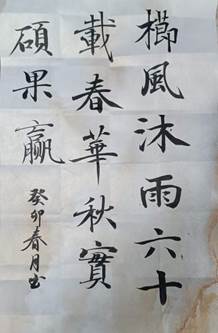 櫛風沐雨六十
載春華秋實
碩果贏
癸卯春月书